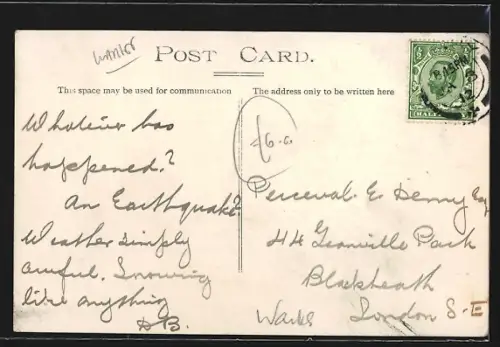 Warks
POST CARD.
This space may be used for communication
The address only to be written here
Whatever has
happened?
An Earthquake?
Weather simply
awful. Snowing
like anything
DB.
£6.0
Perceval. E. Denny Esq
44 Granville Park
Blackheath
London S.E
Warks
HALFPENNY